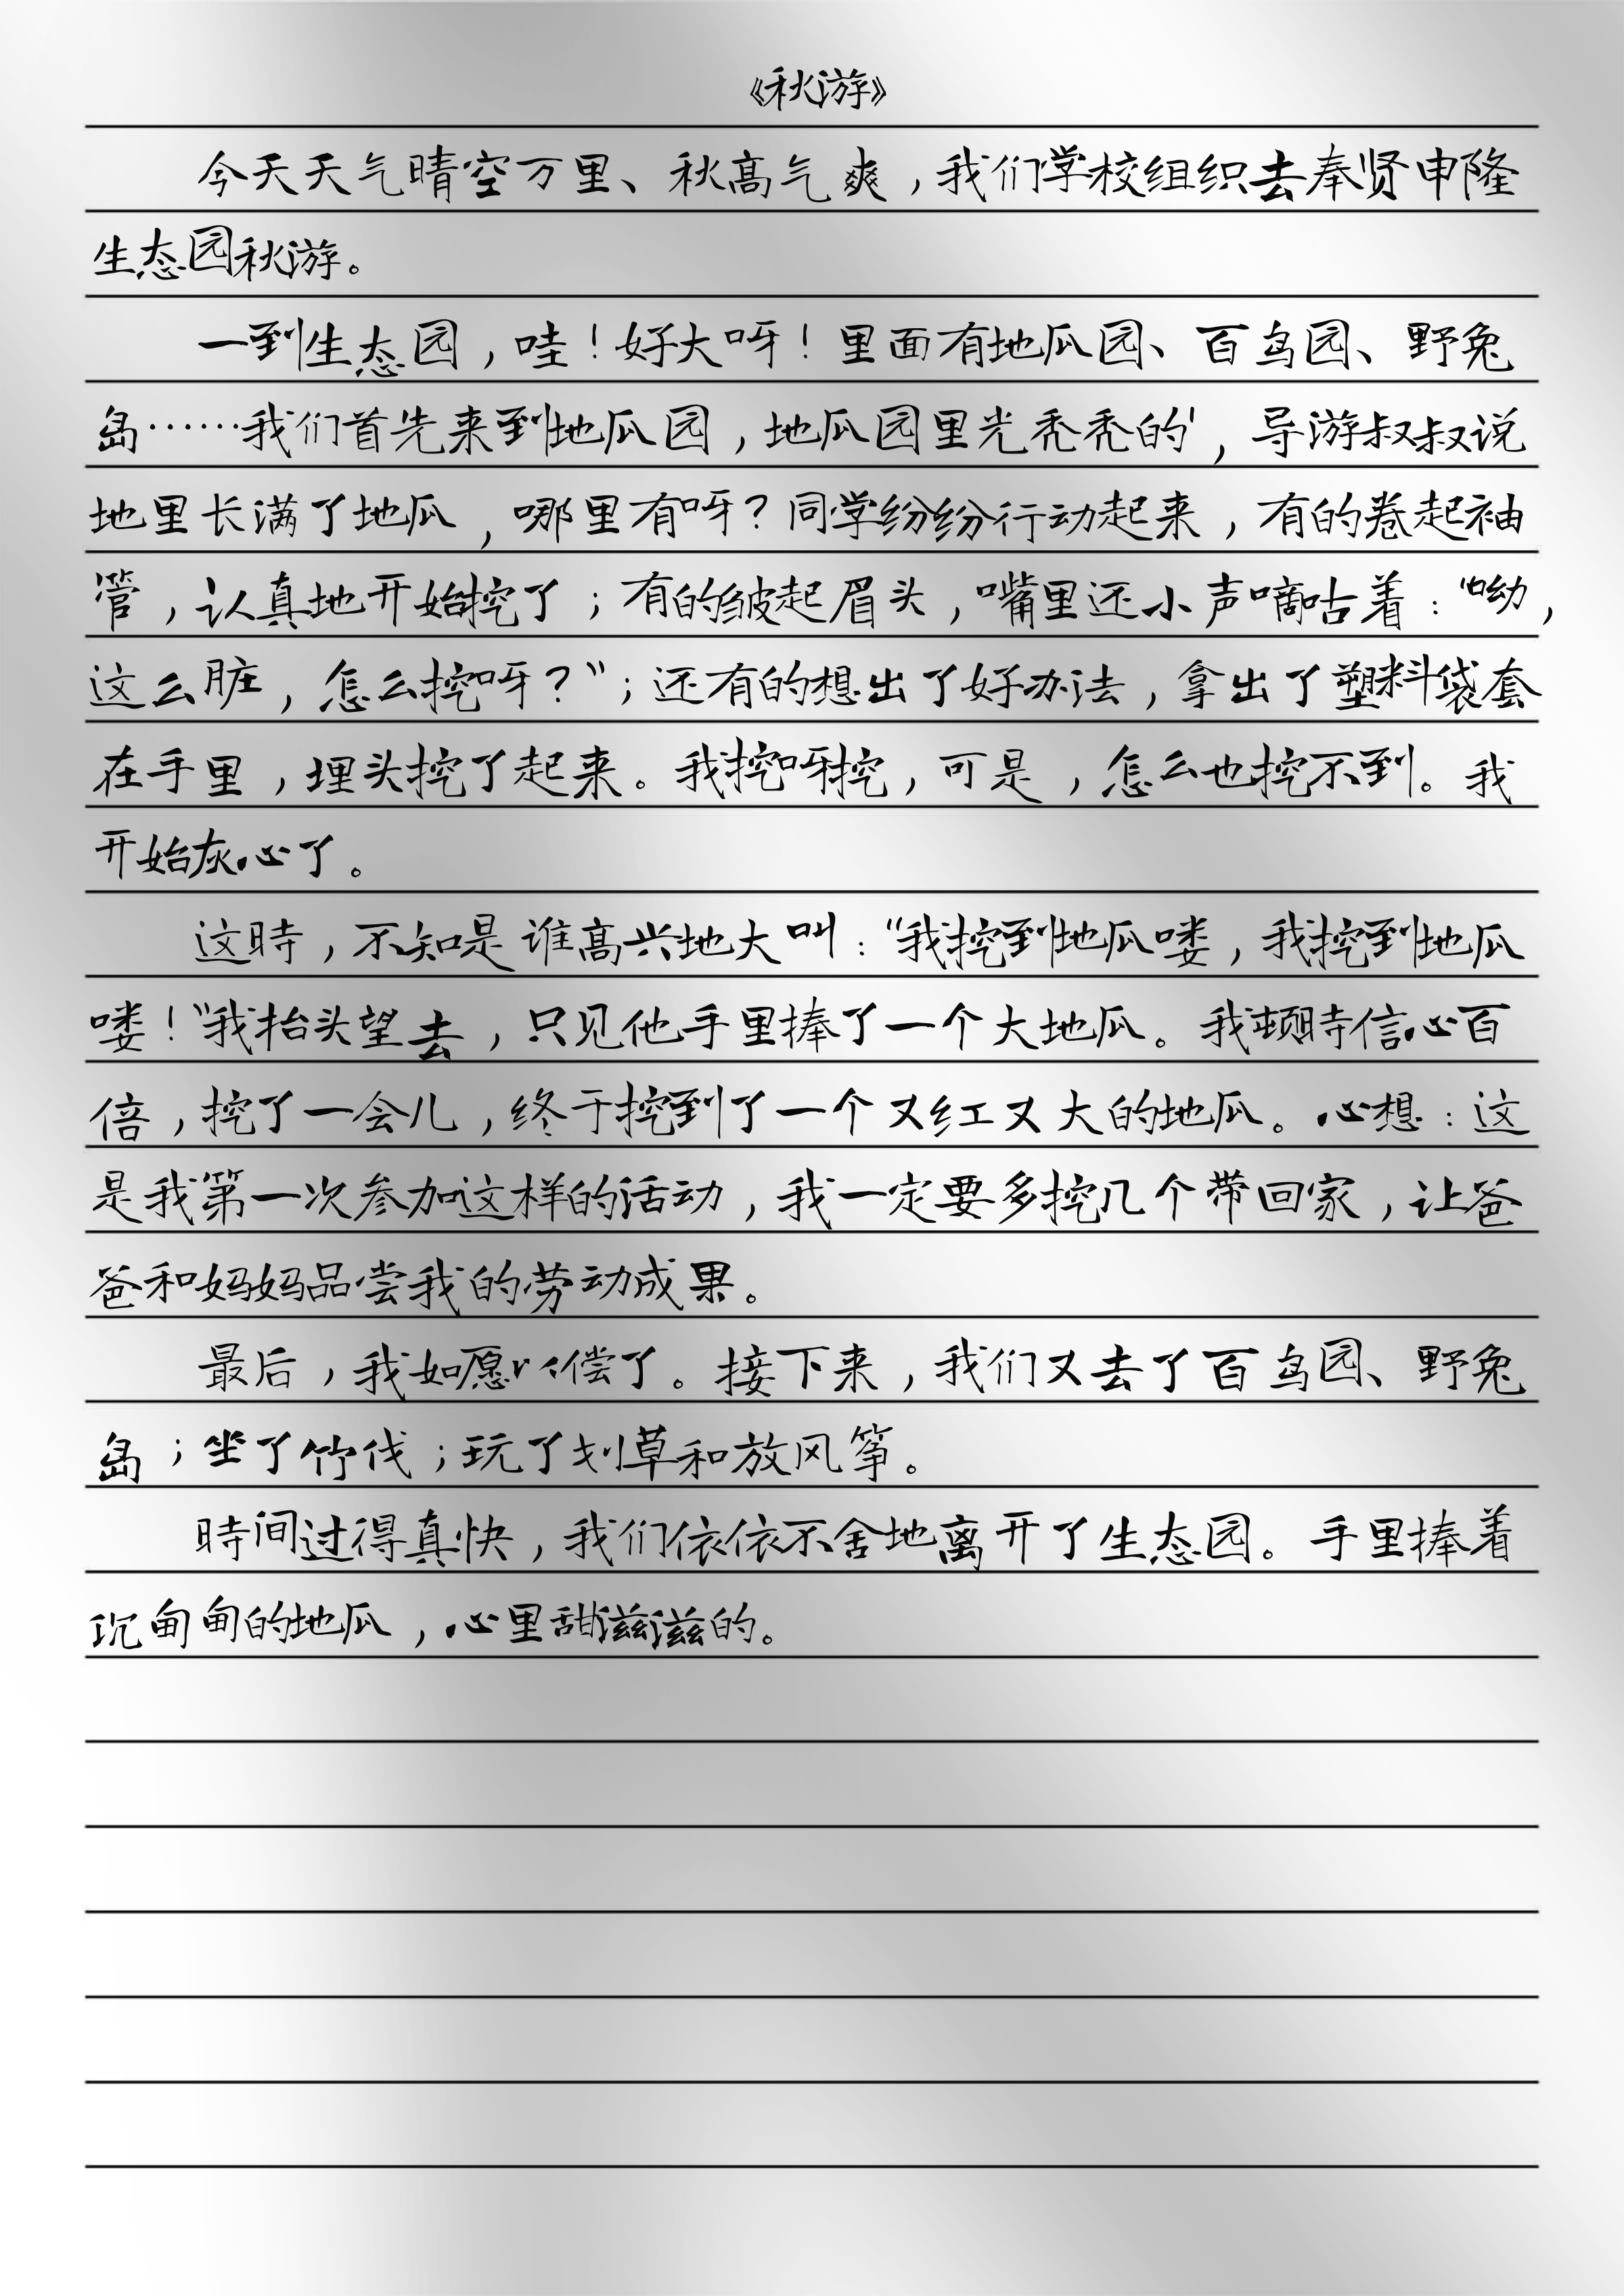 《秋游》
今天天气晴空万里、秋高气爽，我们学校组织去奉贤申隆
生态园秋游。
一到生态园，哇！好大呀！里面有地瓜园、百鸟园、野兔
岛……我们首先来到地瓜园，地瓜园里光秃秃的，导游叔叔说
地里长满了地瓜，哪里有呀？同学纷纷行动起来，有的卷起袖
管，认真地开始挖了；有的皱起眉头，嘴里还小声嘀咕着：“呦，
这么脏，怎么挖呀？”；还有的想出了好办法，拿出了塑料袋套
在手里，埋头挖了起来。我挖呀挖，可是，怎么也挖不到。我
开始灰心了。
这时，不知是谁高兴地大叫：“我挖到地瓜喽，我挖到地瓜
喽！”我抬头望去，只见他手里捧了一个大地瓜。我顿时信心百
倍，挖了一会儿，终于挖到了一个又红又大的地瓜。心想：这
是我第一次参加这样的活动，我一定要多挖几个带回家，让爸
爸和妈妈品尝我的劳动成果。
最后，我如愿以偿了。接下来，我们又去了百鸟园、野兔
岛；坐了竹伐；玩了划草和放风筝。
时间过得真快，我们依依不舍地离开了生态园。手里捧着
沉甸甸的地瓜，心里甜滋滋的。